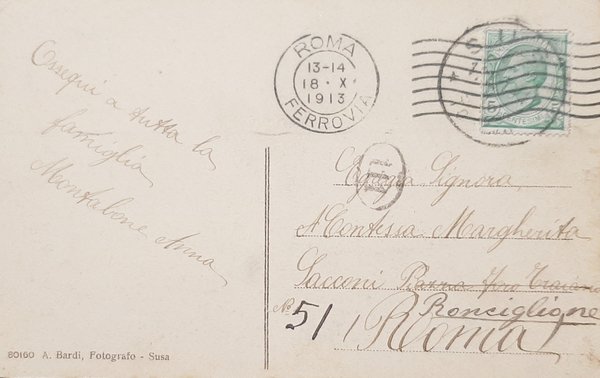 Ossequi a tutta la
famiglia
Montabone Anna
ROMA
13-14
18 · X
1913
FERROVIA
Signora,
Contessa Margherita
Sacconi Piazza Foro Traiano
Ronciglione
No 51
Roma
80160 A. Bardi, Fotografo - Susa